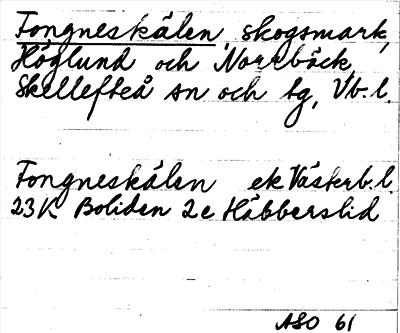 Fongneskälen, skogsmark,
Höglund och Norrbäck,
Skellefteå sn och tg, Vb.l.
Fongneskälen ek Västerb.l.
23K Boliden 2e Häbberslid
ASO 61